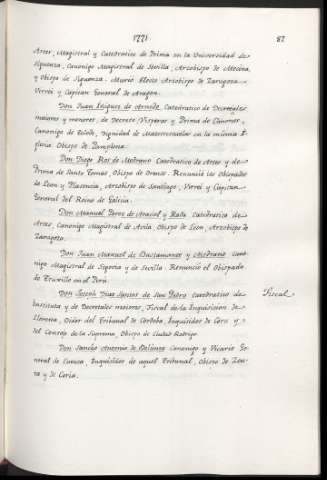 1771
87
Artes, Magistral y Catedratico de Prima en la Universidad de
Siguenza, Canonigo Magistral de Sevilla, Arzobispo de
y Obispo de Siguenza. Murio Electo Arzobispo de Zaragoza
Virrei y Capitan General de Aragon.
Don Juan Iñiguez de Arnedo. Catedratico de Decretales
maiores y menores, de Decreto, Visperas y Prima de Canones,
Canonigo de Toledo, Dignidad de Maestrescuelas en la misma I-
glesia. Obispo de Pamplona.
Don Diego Ros de Medrano Catedratico de Artes y de
Prima de Santo Tomas, Obispo de Orense. Renunció los Obispados
de Leon y Plasencia, Arzobispo de Santiago, Virrei y Capitan
General del Reino de Galicia.
Don Manuel Perez de Araciel y Rada Catedratico de
Artes, Canonigo Magistral de Avila Obispo de Leon, Arzobispo de
Zaragoza.
Don Juan Manuel de Bustamante y Medrano Cano-
nigo Magistral de Segovia y de Sevilla. Renunció el Obispado
de Truxillo en el Perú.
Don Joseph Diaz Santos de San Pedro Catedratico de
Instituta y de Decretales maiores, Fiscal de la Inquisicion de
Fiscal
Llerena, Oidor del Tribunal de Cordoba, Inquisidor de Corte y
del Consejo de la Suprema, Obispo de Ciudad Rodrigo.
Don Sancho Antonio de Belunza Canonigo y Vicario Ge-
neral de Cuenca, Inquisidor de aquel Tribunal, Obispo de Ceu-
ta y de Coria.